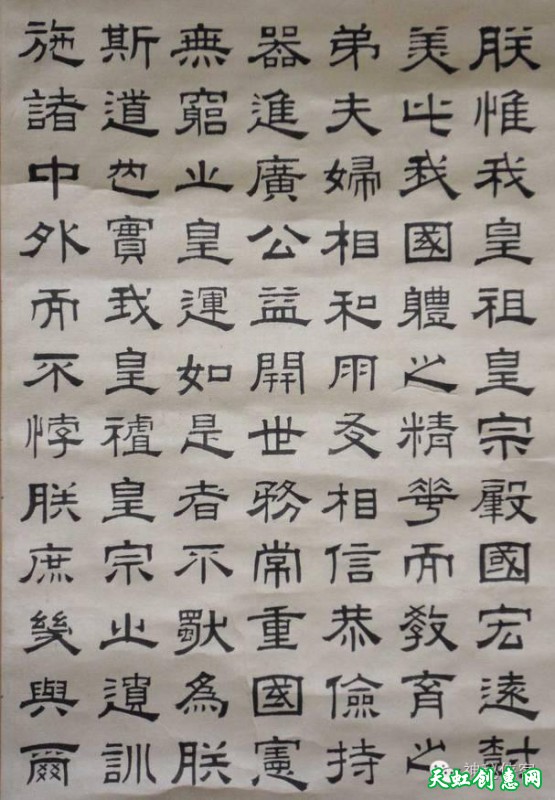 朕惟我皇祖皇宗肇國宏遠樹
美此我國體之精華而教育之
弟夫婦相和朋友相信恭儉持
器進廣公益開世務常重國憲
無窮之皇運如是者不獨為朕
斯道也實我皇祖皇宗之遺訓
施諸中外而不悖朕庶幾與爾
天虹创意网